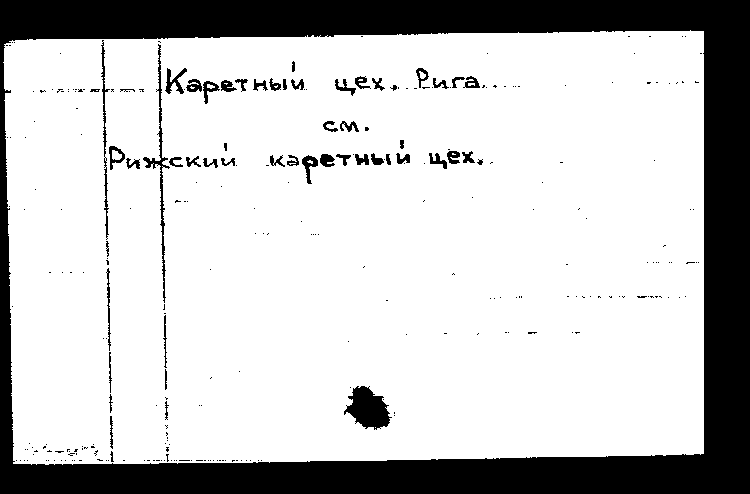 Каретный цех. Рига
см.
Рижский каретный цех.